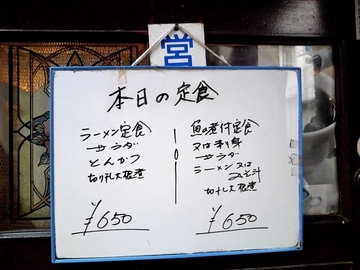 営
本日の定食
ラーメン定食
サラダ
とんかつ
切り干し大根煮
¥650
魚の煮付定食
又は刺身
サラダ
ラーメン又は
みそ汁
切干し大根煮
¥650